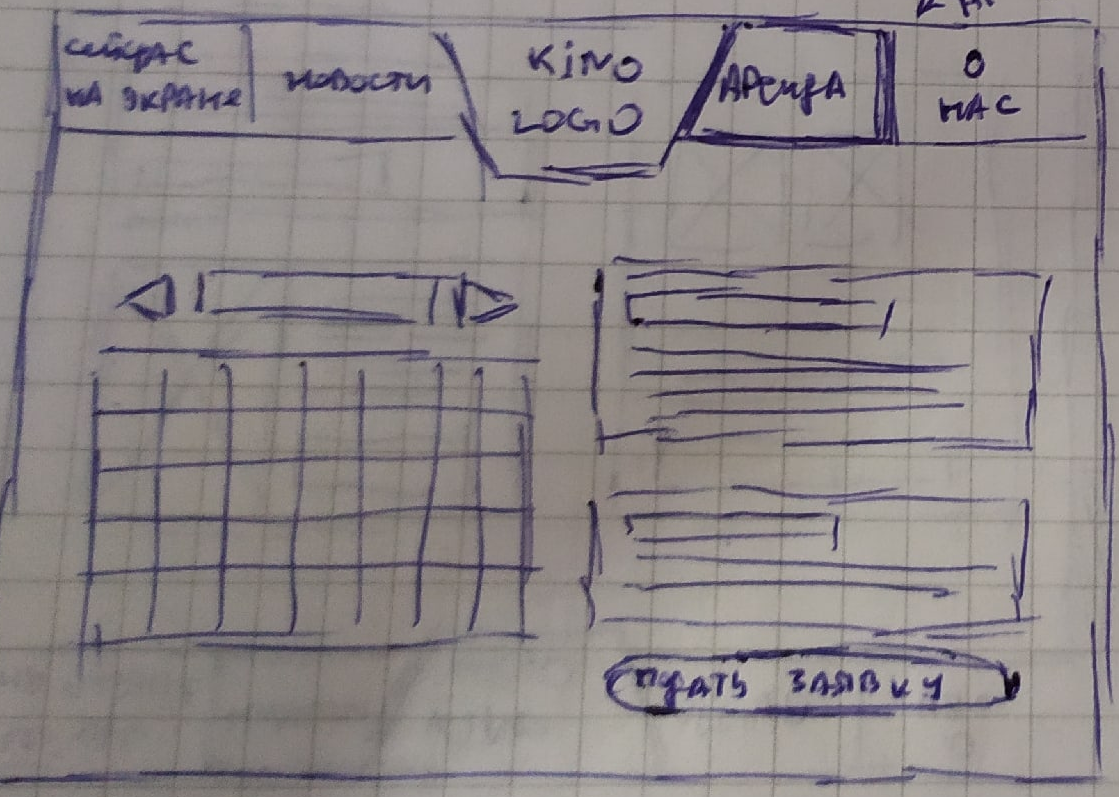 сейчас
на экране
новости
KiNO
LOGO
Аренда
О
нас
подать заявку